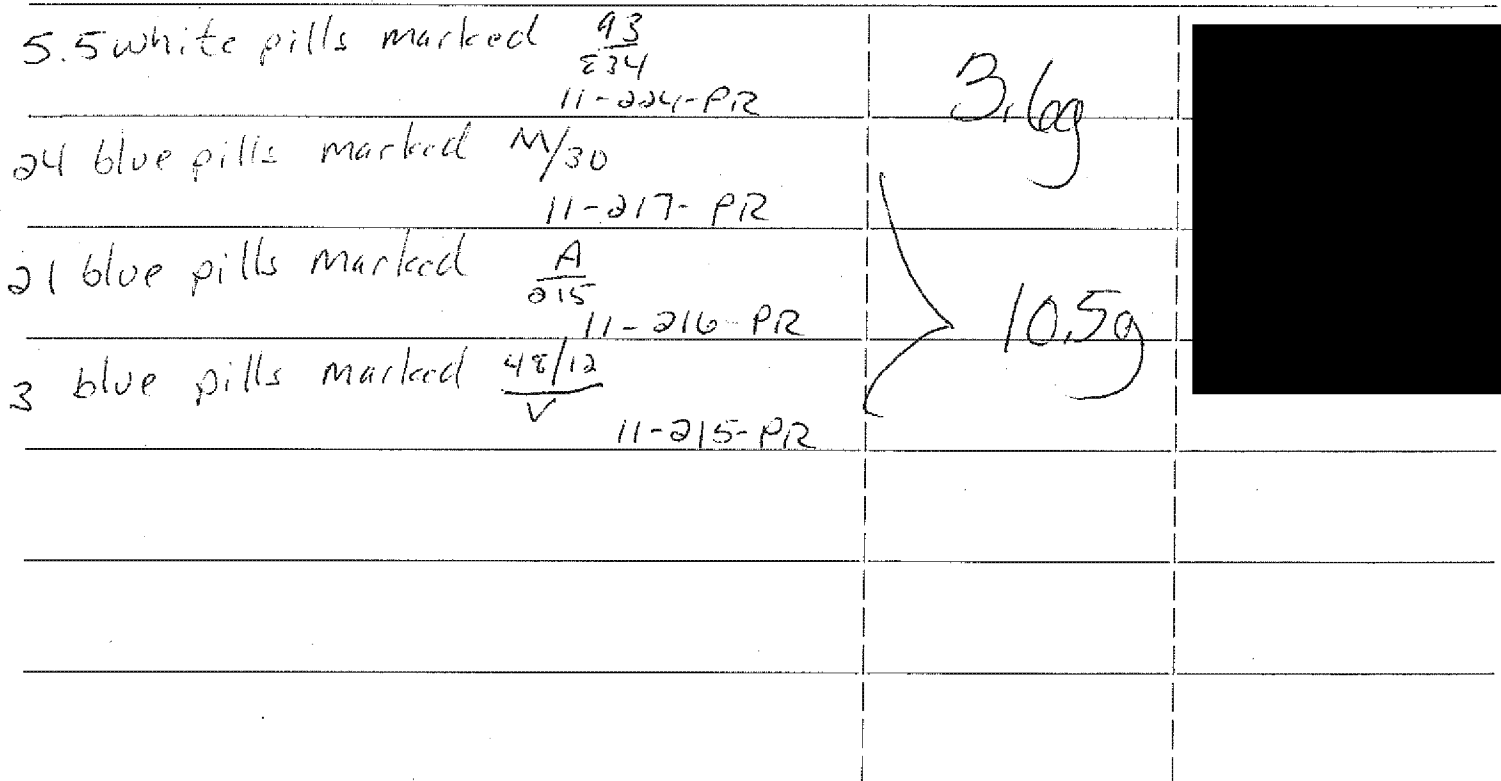 5.5 white pills marked 93
834
11-224-PR
3.6g
24 blue pills marked M/30
11-217-PR
21 blue pills marked A
215
11-216-PR
10.5g
3 blue pills marked 48/12
V
11-215-PR